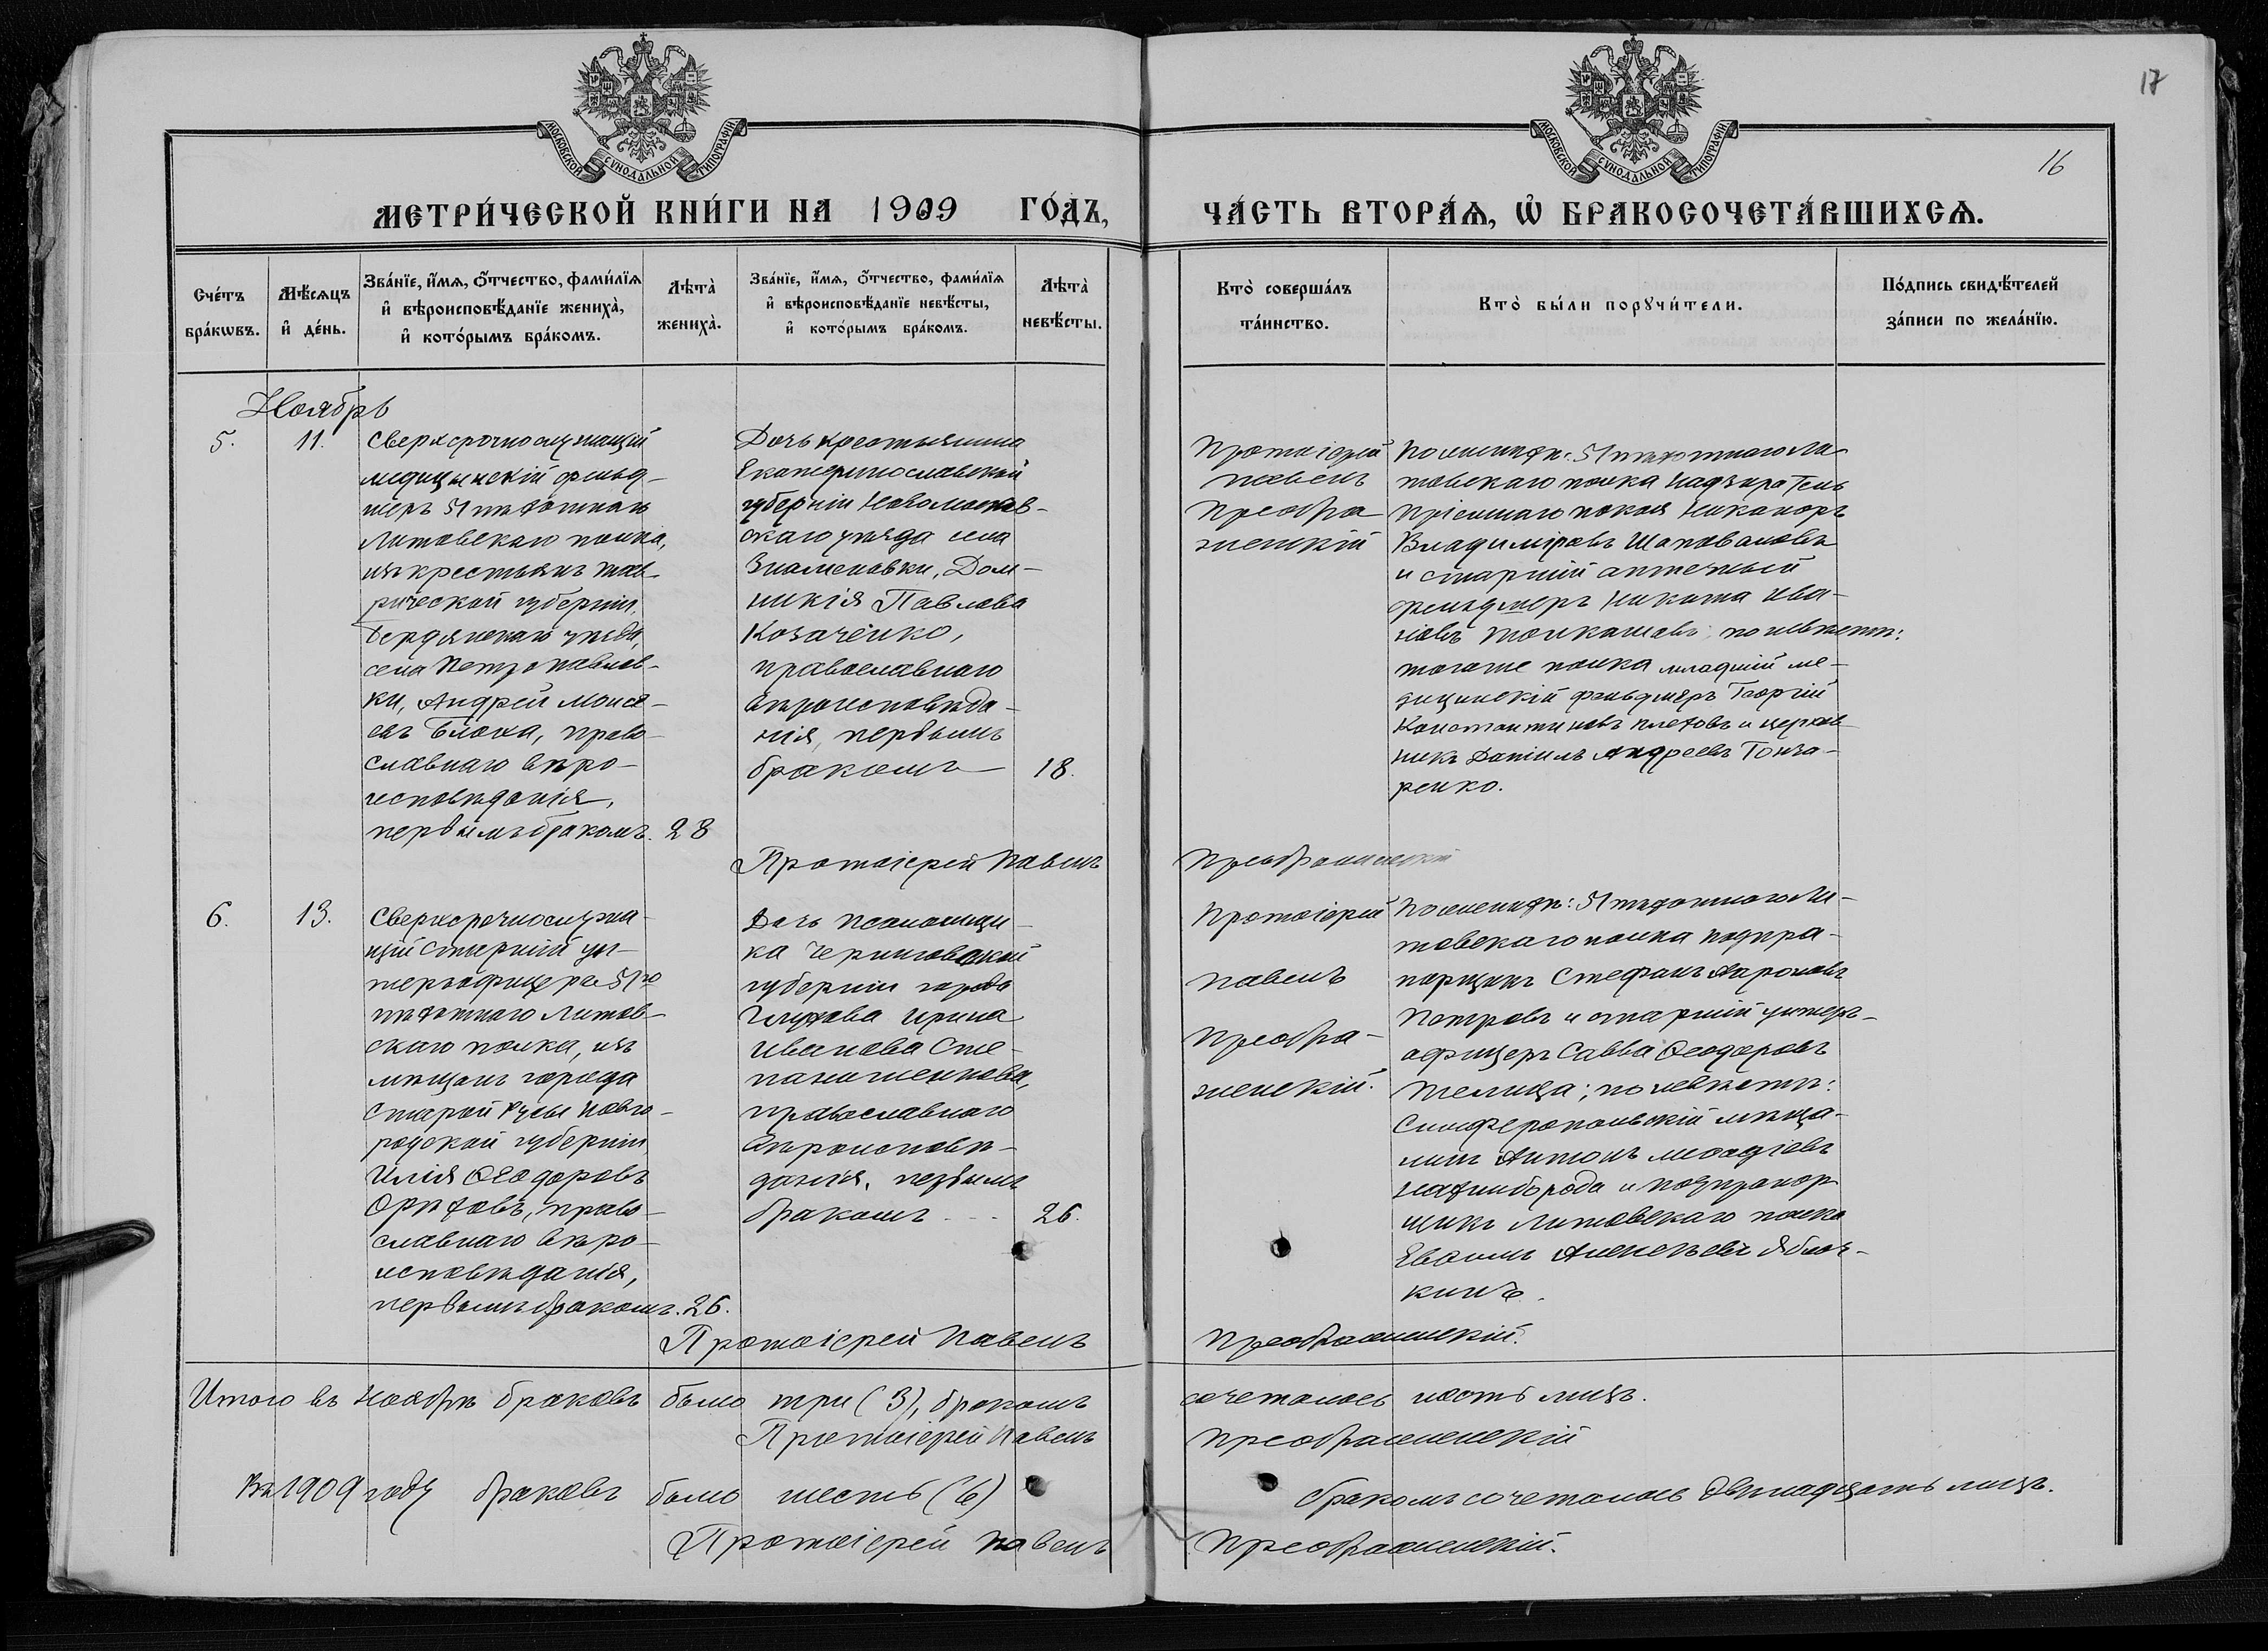 17
16
МОСКОВСКОЙ СѴНОДАЛЬНОЙ ТИПОГРАФІИ.
МОСКОВСКОЙ СѴНОДАЛЬНОЙ ТИПОГРАФІИ.
МЕТРИ́ЧЕСКОЙ КНИ́ГИ НА 1909 ГО́ДЪ,
ЧА́СТЬ ВТОРА́Ѧ, Ѽ БРАКОСОЧЕТА́ВШИХСѦ.
Сче́тъ
бра́кѡвъ.
Мѣ́сѧцъ
и҆ де́нь.
Зва́нїе, и҆́мѧ, ѻ҆́тчество, фами́лїѧ
и҆ вѣроисповѣ́данїе жениха̀,
и҆ кото́рымъ бра́комъ.
Лѣта̀
жениха̀.
Зва́нїе, и҆́мѧ, ѻ҆́тчество, фами́лїѧ
и҆ вѣроисповѣ́данїе невѣ́сты,
и҆ кото́рымъ бра́комъ.
Лѣта̀
невѣ́сты.
Кто̀ соверша́лъ
та́инство.
Кто̀ бы́ли порꙋчи́тели.
По́дпись свидѣ́телей
за́писи по жела́нїю.
Ноябрь
5.
11.
Сверхсрочнослужащій
медицинскій фельд-
шеръ 51 пѣхотнаго
Литовскаго полка,
изъ крестьянъ Тав-
рической губерніи,
Бердянскаго уѣзда,
села Петропавлов-
ки, Андрей Моисе-
евъ Блоха, право-
славнаго вѣро-
исповѣданія,
первымъ бракомъ.
28
Дочь крестьянина
Екатеринославской
губерніи Новомосков-
скаго уѣзда села
Знаменовки, Дом-
никія Павлова
Козаченко,
православнаго
вѣроисповѣда-
нія, первымъ
бракомъ
18.
Протоіерей
Павелъ
Преобра
женскій
По женихѣ: 51 пѣхотнаго Ли-
товскаго полка надзиратель
пріемнаго покоя Никаноръ
Владиміровъ Шаповаловъ
и старшій аптечный
фельдшеръ Никита Ива-
новъ Толкачевъ; по невѣстѣ:
тогоже полка младшій ме-
дицинскій фельдшеръ Георгій
Константиновъ и церков-
никъ Даніилъ Андреевъ Гонча-
ренко.
Протоіерей Павелъ
Преображенскій
6.
13.
Сверхсрочнослужа-
щій старшій ун-
теръ-офицеръ 51го
пѣхотнаго Литов-
скаго полка, изъ
мѣщанъ города
Старой Русы Новго-
родской губерніи
Илія Ѳеодоровъ
Орѣховъ, право-
славнаго вѣро-
исповѣданія,
первымъ бракомъ.
26.
Дочь псаломщи-
ка Черниговской
губерніи города
Глухова Ирина
Иванова Сте-
православнаго
вѣроисповѣ-
данія, первымъ
бракомъ
26.
Протоіерей
Павелъ
Преобра-
женскій.
По женихѣ: 51 пѣхотнаго Ли-
товскаго полка подпра-
порщикъ Стефанъ
Петровъ и старшій унтеръ-
офицеръ Савва Ѳеодоровъ
Телица; по невѣстѣ:
Симферопольскій мѣща-
нинъ Антонъ
и подпрапор-
щикъ Литовскаго полка
Яблоч-
кинъ.
Протоіерей Павелъ
Преображенскій.
Итого въ Ноябрѣ браковъ было три (3), бракомъ
сочеталось шесть лицъ.
Протоіерей Павелъ
Преображенскій
Въ 1909 году браковъ было шесть (6)
бракомъ сочеталось двѣнадцать лицъ.
Протоіерей Павелъ
Преображенскій.